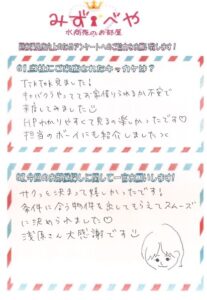 みずべや
水商売のお部屋
Q1.当社にご来店されたキッカケは?
TikTok見ました!
キャバクラやってても家借りられるか不安で
来店してみました☺
HPわかりやすくて見るの楽しかったです♡
担当のボーイにも紹介しましたっ
Q2.今回のお部屋探しに関して一言お願いします!
サクッと決まって嬉しかったです!
条件に合う物件を出してもらえてスムーズ
に決められました♡
浅原さん大感謝です☺